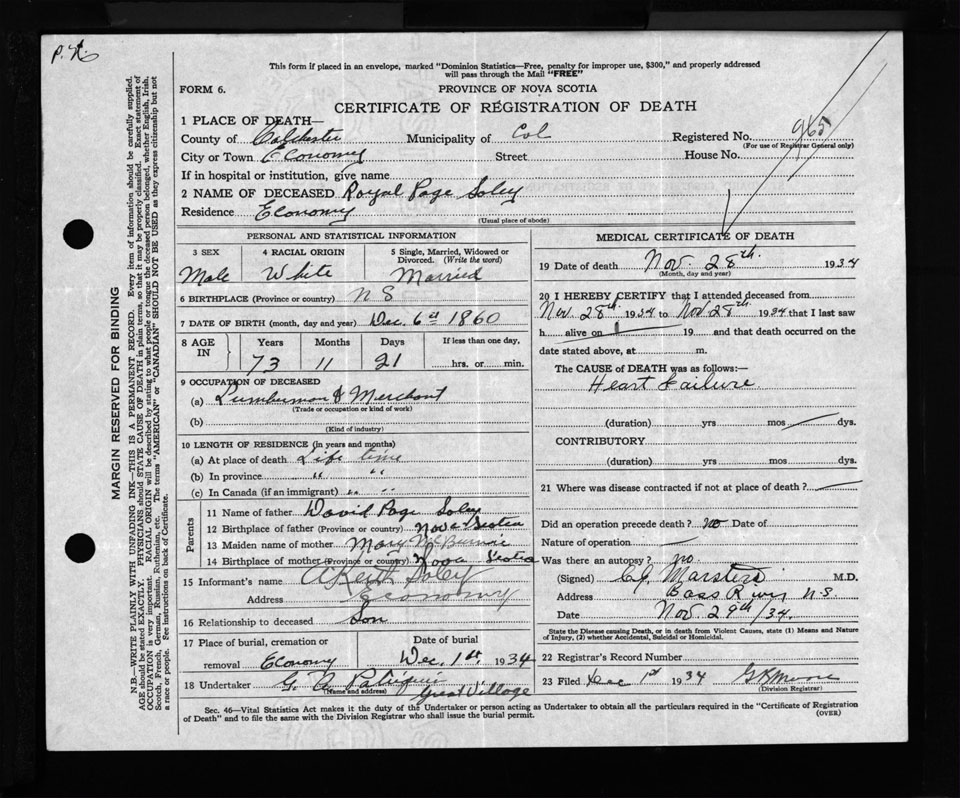 P.
This form if placed in an envelope, marked "Dominion Statistics—Free, penalty for improper use, $300," and properly addressed
will pass through the Mail "FREE"
FORM 6.
PROVINCE OF NOVA SCOTIA
CERTIFICATE OF REGISTRATION OF DEATH
1 PLACE OF DEATH—
County of Colchester Municipality of Col Registered No. 965
(For use of Registrar General only)
City or Town Economy Street House No.
If in hospital or institution, give name
2 NAME OF DECEASED Royal Page Soley
Residence Economy
(Usual place of abode)
PERSONAL AND STATISTICAL INFORMATION
3 SEX 4 RACIAL ORIGIN 5 Single, Married, Widowed or
Divorced. (Write the word)
Male White Married
6 BIRTHPLACE (Province or country) N S
7 DATE OF BIRTH (month, day and year) Dec. 6th 1860
8 AGE IN Years Months Days If less than one day,
73 11 21 hrs. or min.
9 OCCUPATION OF DECEASED
(a) Lumberman & Merchant
(Trade or occupation or kind of work)
(b)
(Kind of industry)
10 LENGTH OF RESIDENCE (in years and months)
(a) At place of death Life time
(b) In province " "
(c) In Canada (if an immigrant) " "
Parents
11 Name of father David Page Soley
12 Birthplace of father (Province or country) Nova Scotia
13 Maiden name of mother Mary McBurnie
14 Birthplace of mother (Province or country) Nova Scotia
15 Informant's name A Keith Soley
Address Economy
16 Relationship to deceased Son
17 Place of burial, cremation or Date of burial
removal Economy Dec. 1st. 1934
18 Undertaker G. Patriquin
(Name and address) Great Village
MEDICAL CERTIFICATE OF DEATH
19 Date of death Nov. 28th. 1934
(Month, day and year)
20 I HEREBY CERTIFY that I attended deceased from
Nov. 28th. 1934 to Nov 28th. 1934 that I last saw
h alive on 19 and that death occurred on the
date stated above, at m.
The CAUSE of DEATH was as follows:—
Heart Failure
(duration) yrs mos dys.
CONTRIBUTORY
(duration) yrs. mos. dys.
21 Where was disease contracted if not at place of death?
Did an operation precede death? no Date of
Nature of operation —
Was there an autopsy? no
(Signed) Marsters M.D.
Address Bass River N-S.
Date Nov. 29th /34.
State the Disease causing Death, or in death from Violent Causes, state (1) Means and Nature
of Injury, (2) whether Accidental, Suicidal or Homicidal.
22 Registrar's Record Number
23 Filed Dec 1st 1934 Moore
(Division Registrar)
Sec. 46—Vital Statistics Act makes it the duty of the Undertaker or person acting as Undertaker to obtain all the particulars required in the "Certificate of Registration
of Death" and to file the same with the Division Registrar who shall issue the burial permit.
(OVER)
MARGIN RESERVED FOR BINDING
N.B.—WRITE PLAINLY WITH UNFADING INK—THIS IS A PERMANENT RECORD. Every item of information should be carefully supplied.
AGE should be stated EXACTLY. PHYSICIANS should STATE CAUSE OF DEATH in plain terms, so that it may be properly classified. Exact statement of
OCCUPATION is very important. RACIAL ORIGIN will be described by stating to what people or tongue the deceased person belonged, whether English, Irish,
Scotch, French, German, Russian, Ruthenian, etc. The terms "AMERICAN" or "CANADIAN" SHOULD NOT BE USED as they express citizenship but not
a race or people. See instructions on back of Certificate.